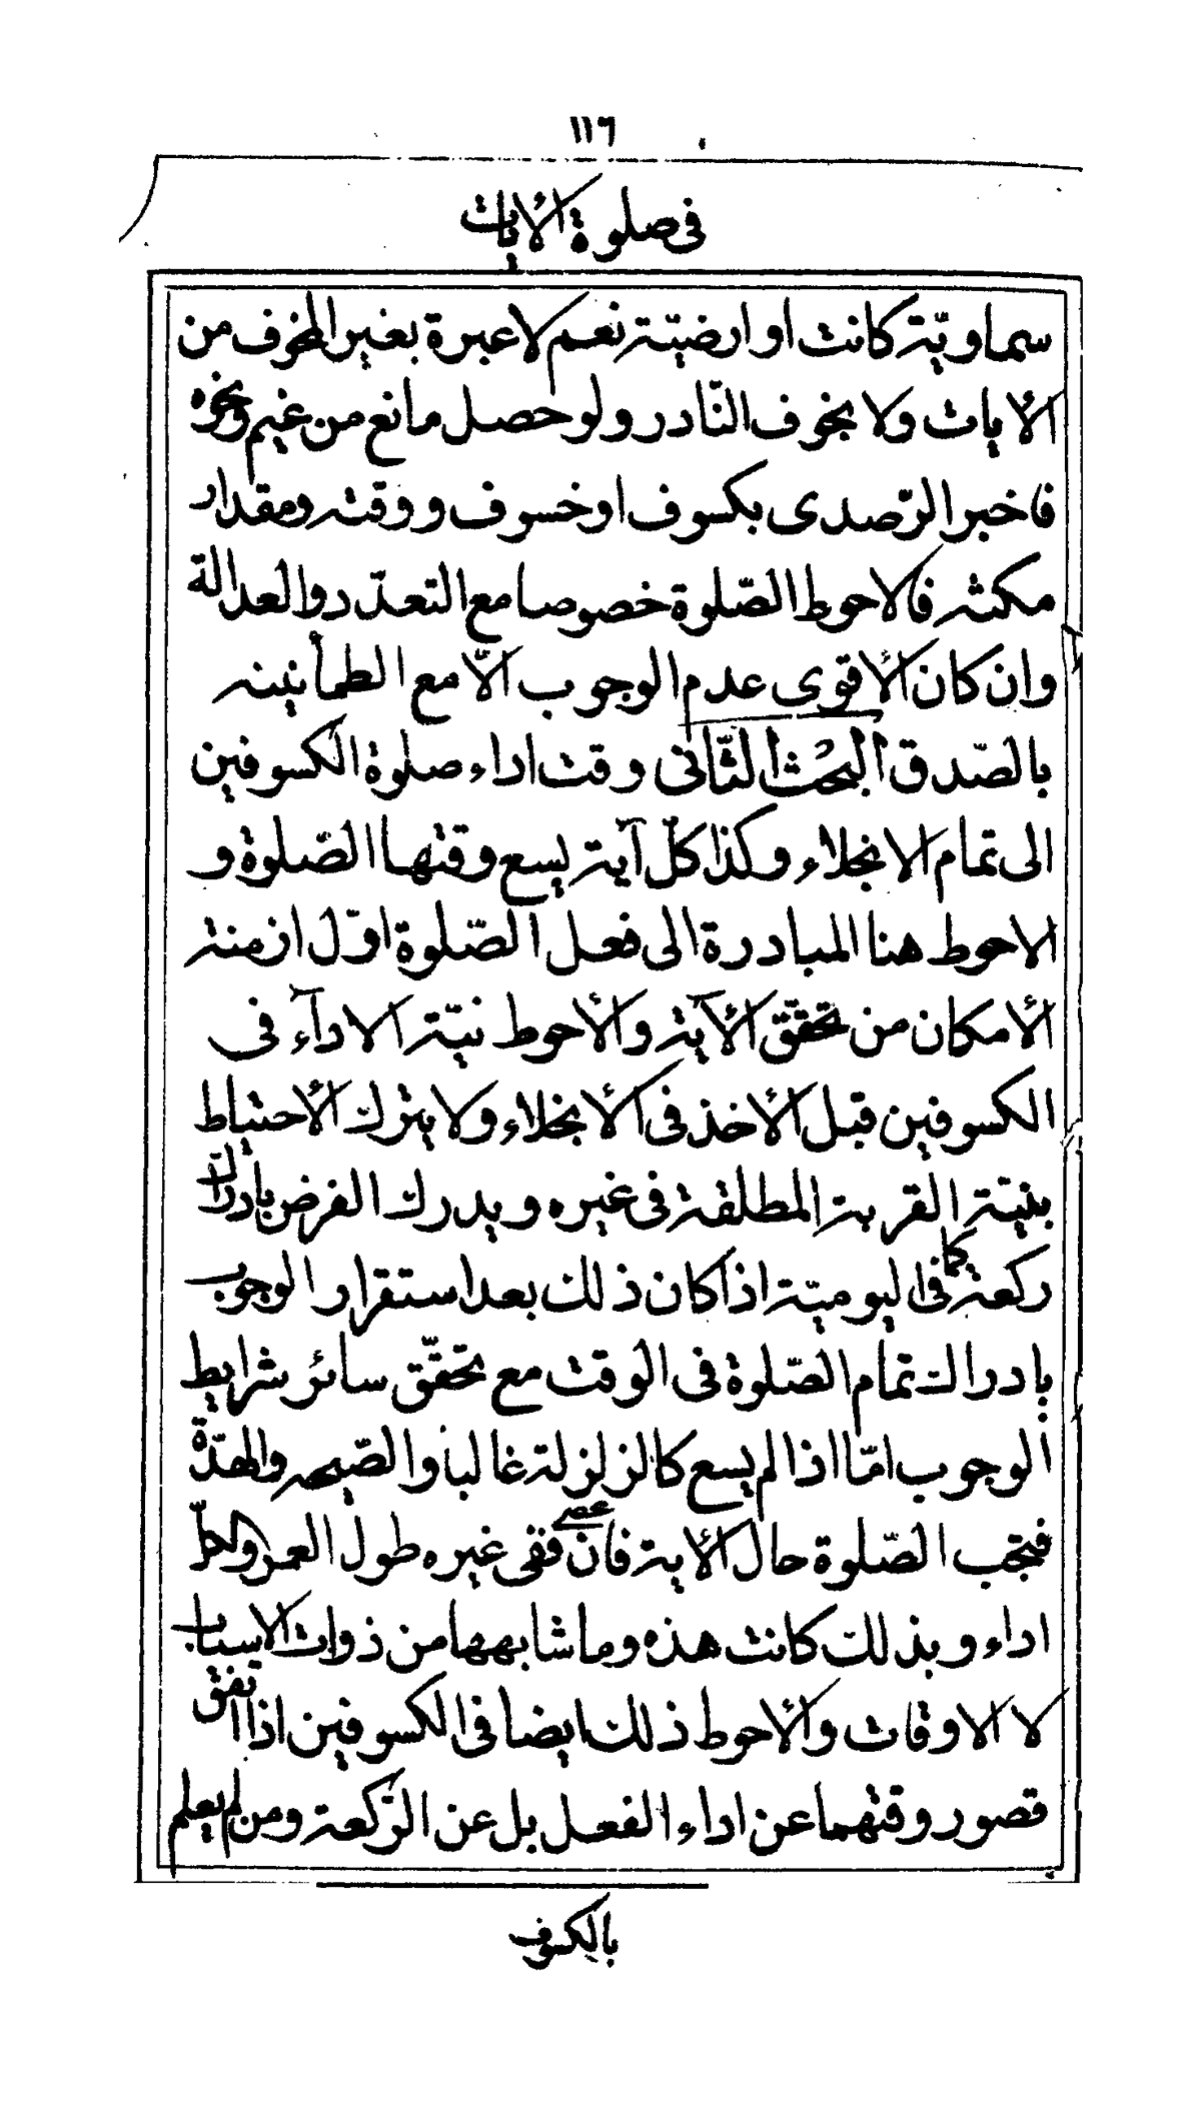 ١١٦
فى صلوة الأيات
سماويّة كانت او ارضيّة نعم لا عبرة بغير المخوف من
الأيات ولا بخوف النّادر ولو حصل مانع من غيم ونحوه
فاخبر الرّصدى بكسوف او خسوف ووقته ومقدار
مكثه فالاحوط الصّلوة خصوصا مع التعدّد والعدالة
وان كان الأقوى عدم الوجوب الّا مع الطمأنينه
بالصّدق البحث الثّانى وقت اداء صلوة الكسوفين
الى تمام الانجلاء وكذا كلّ آية يسع وقتها الصّلوة و
الاحوط هنا المبادرة الى فعل الصّلوة اوّل ازمنة
الأمكان من تحقّق الأية والأحوط نيّة الاداء فى
الكسوفين قبل الأخذ فى الأنجلاء ولا يترك الأحتياط
بنيّة القربة المطلقة فى غيره ويدرك الفرض بادراك
ركعة كما فى اليوميّة اذا كان ذلك بعد استقرار الوجوب
بادراك تمام الصّلوة فى الوقت مع تحقّق سائر شرايط
الوجوب امّا اذا لم يسع كالزلزلة غالبا والصّيحه والهدّة
فتجب الصّلوة حال الأية فان عصى ففى غيره طول العمر والكلّ
اداء وبذلك كانت هذه وما شابهها من ذوات الاسباب
لا الاوقات والأحوط ذلك ايضا فى الكسوفين اذا اتفق
قصور وقتهما عن اداء الفعل بل عن الرّكعة ومن لم يعلم
بالكسوف